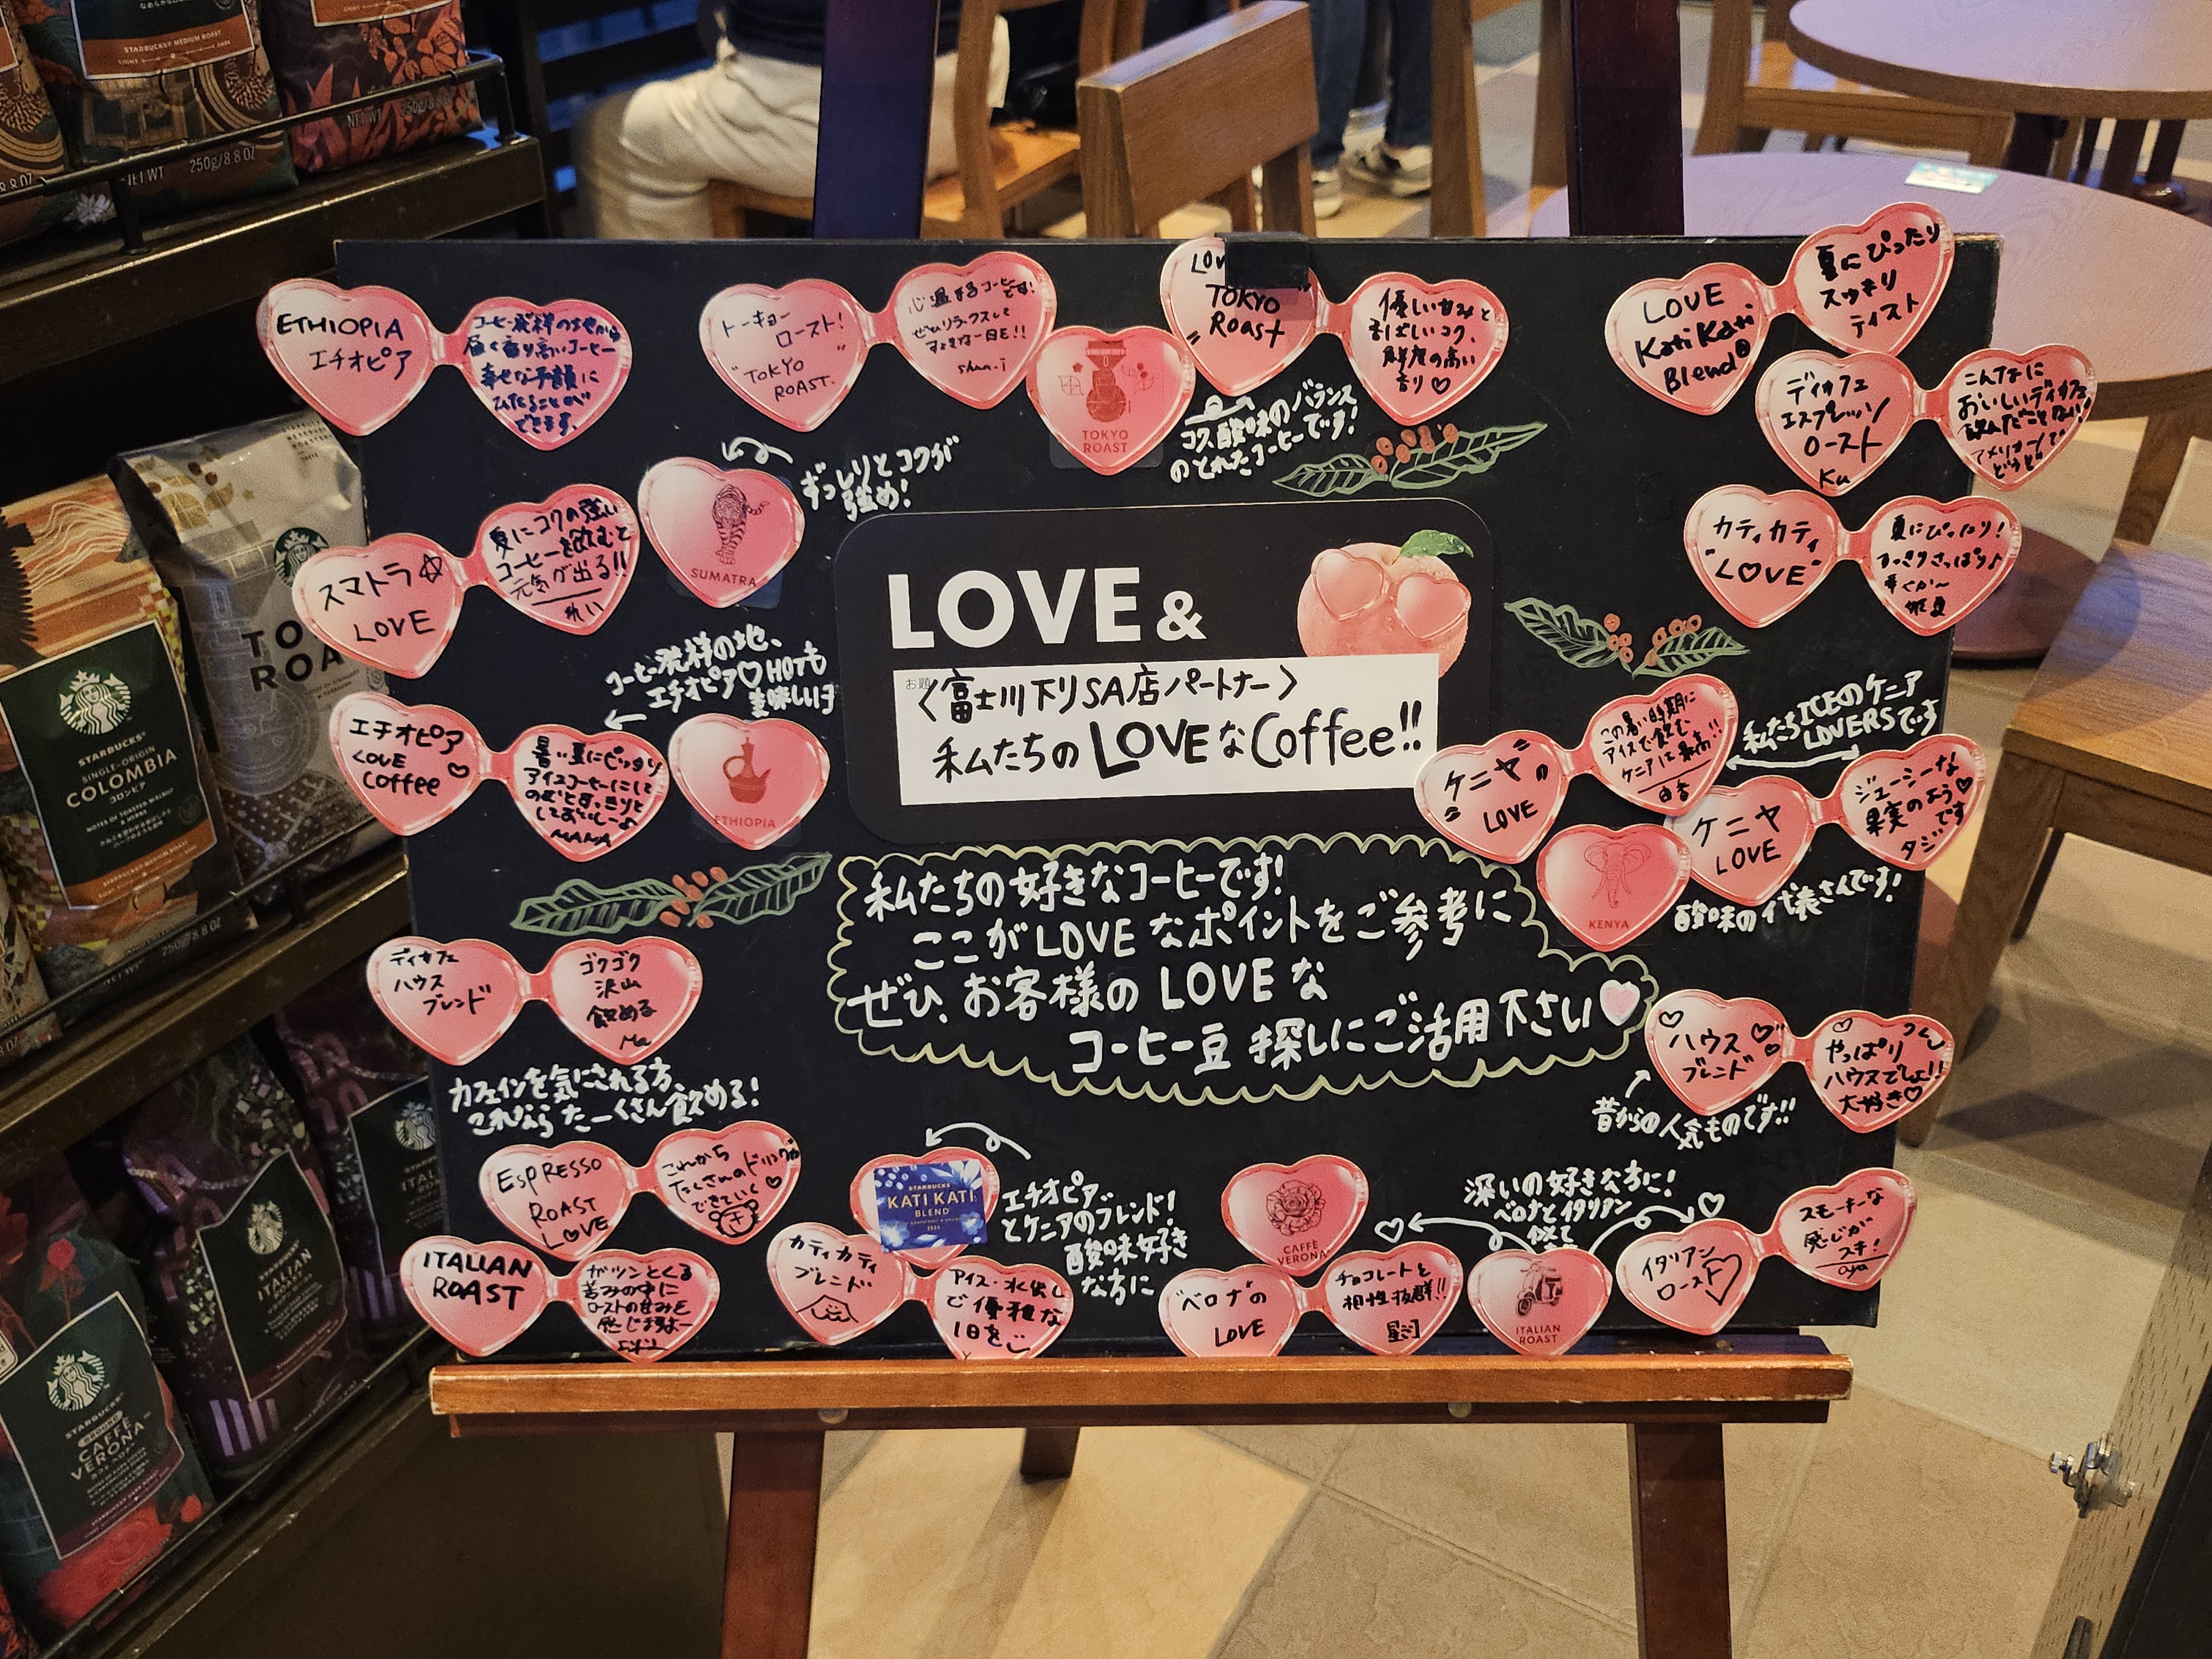 STARBUCKS® MEDIUM ROAST
250g/8.8 OZ
NET WT 250g/8.8 OZ
ETHIOPIA
エチオピア
コーヒー発祥の地から
届く香り高いコーヒー
幸せな余韻に
ひたることが
できます。
トーキョー
ロースト!
"TOKYO
ROAST."
心温まるコーヒー
です!
ぜひリラックスして
すてきな一日を!!
shun.i
TOKYO
ROAST
TOKYO
Roast
優しい甘みと
香ばしいコク、
鮮度の高い
香り♡
コク、酸味のバランス
のとれたコーヒーです!
LOVE
Kati Kati
Blend
夏にぴったり
スッキリ
テイスト
ディカフェ
エスプレッソ
ロースト
Ku
こんなに
おいしいディカフェ
飲んだことない!
アメリカーノで
どうぞ
ずっしりとコクが
強め!
SUMATRA
スマトラ☆
LOVE
夏にコクの強い
コーヒーを飲むと
元気が出る!!
カティカティ
"LOVE"
夏にぴったり!
すっきりさっぱり♪
LOVE &
お題
<富士川下りSA店パートナー>
私たちのLOVEなCoffee!!
コーヒー発祥の地、
エチオピア♡HOTも
美味しい
エチオピア
LOVE
Coffee♡
暑い夏にピッタリ
アイスコーヒーにして
MANA
ETHIOPIA
ケニヤの
LOVE
この暑い時期に
アイスで飲む
ケニアは最高!!
私たちICEのケニア
LOVERSです
ケニヤ
LOVE
ジューシーな
果実のよう♡
です
タジ
KENYA
酸味の代表さんです!
私たちの好きなコーヒーです!
ここがLOVEなポイントをご参考に
ぜひ、お客様のLOVEな
コーヒー豆探しにご活用下さい
ディカフェ
ハウス
ブレンド
ゴクゴク
沢山
飲める
Ma
カフェインを気にされる方、
これならたーくさん飲める!
ハウス
ブレンド
やっぱり
ハウスでしょ!!
大好き♡
昔からの人気ものです!!
ESPRESSO
ROAST
LOVE
これから
たくさんのドリンクが
できていく♡
ITALIAN
ROAST
ガツンとくる
苦みの中に
ローストの甘みを
感じますよー
STARBUCKS
KATI KATI
BLEND
エチオピア
とケニアのブレンド!
酸味好き
な方に
カティカティ
ブレンド
アイス・水出し
で優雅な
1日を
CAFFÈ
VERONA
ベロナの
LOVE
チョコレートと
相性抜群!!
深いの好きな方に!
ベロナとイタリアン
ITALIAN
ROAST
イタリアン
ロースト♡
スモーキーな
感じが
スキ!
aya
STARBUCKS®
SINGLE-ORIGIN
COLOMBIA
コロンビア
NOTES OF TOASTED WALNUT
& HERBS
250g/8.8 OZ
STARBUCKS
CAFFÈ
VERONA
カフェ ベロナ
ITALIAN